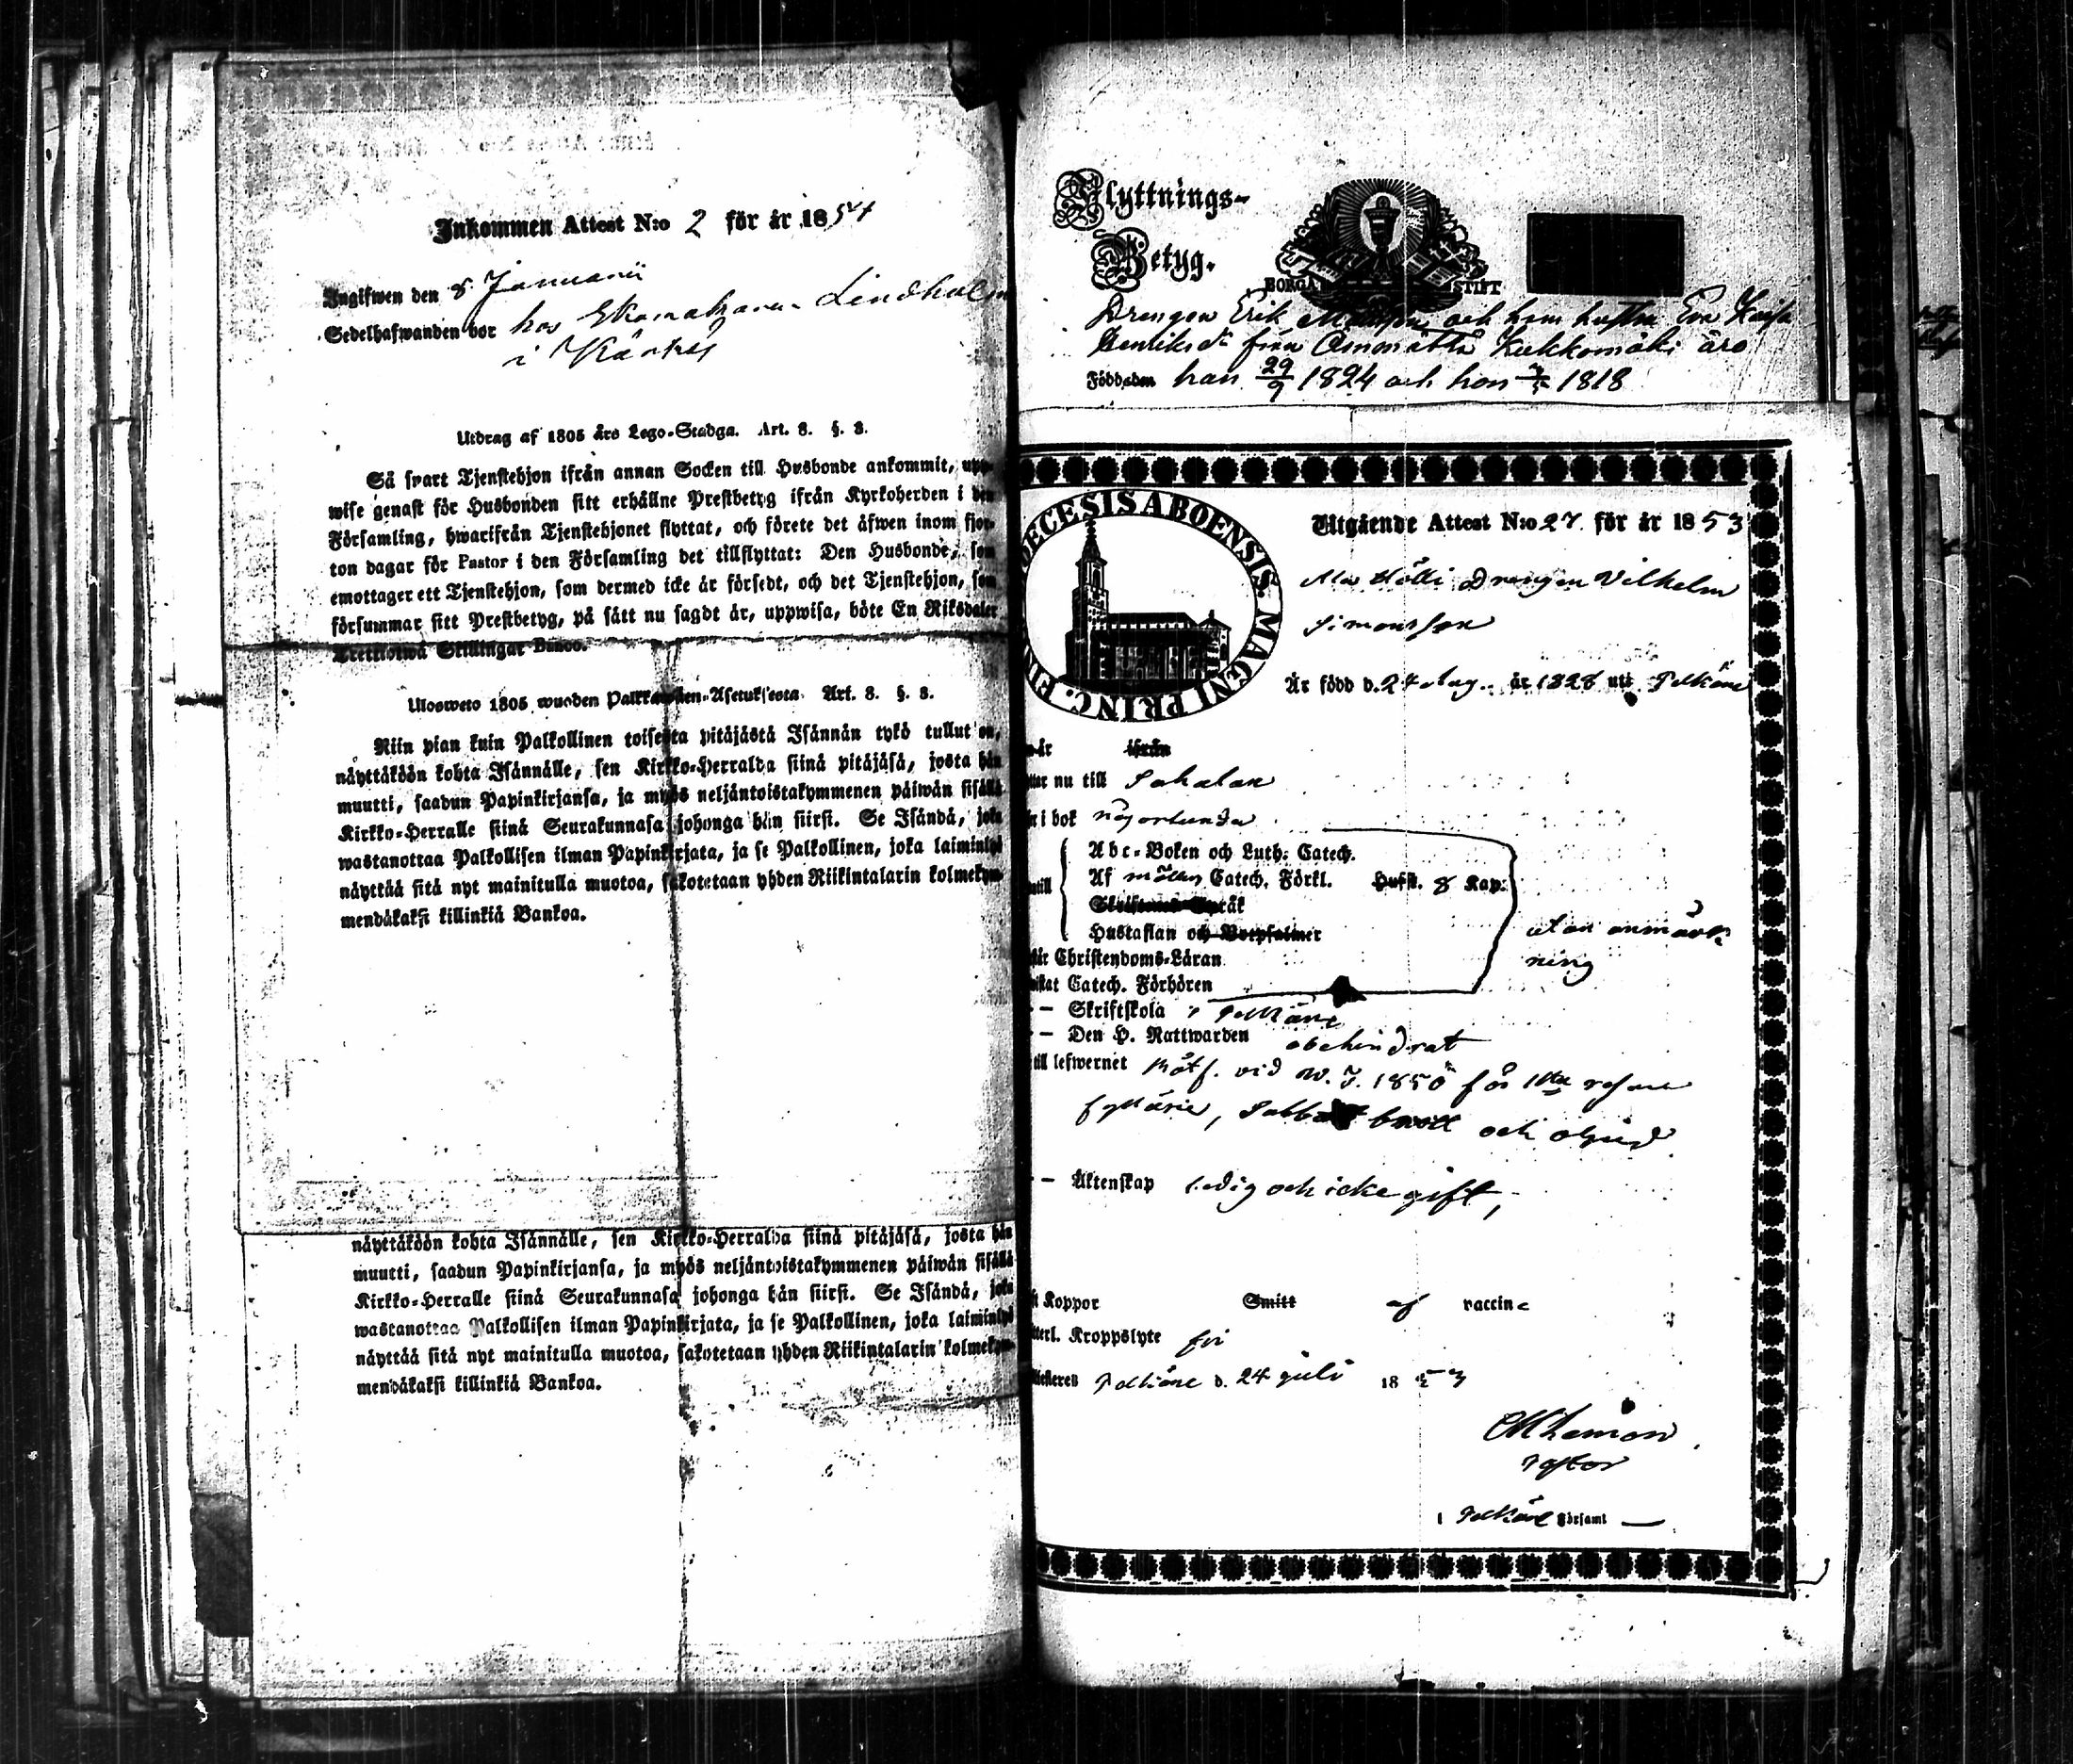 Inkommen Attest N:o 2 för år 1854
Ingifwen den 8 Januarii
Sedelhafwanden bor hos Skomakaren Lindholm
i Kärkis
Utdrag af 1805 års Lego-Stadga. Art. 8. §. 8.
Så snart Tjenstehjon ifrån annan Socken till Husbonde ankommit, upp-
wise genast för Husbonden sitt erhållne Prestbetyg ifrån Kyrkoherden i den
Församling, hwarifrån Tjenstehjonet flyttat, och förete det äfwen inom fjor-
ton dagar för Pastor i den Församling det tillflyttat: Den Husbonde, som
emottager ett Tjenstehjon, som dermed icke är försedt, och det Tjenstehjon, som
försummar sitt Prestbetyg, på sätt nu sagdt är, uppwisa, böte En Riksdaler
Trettiotwå Skillingar Banco.
Uloswето 1805 wuoden Palkkawäen-Asetuksesta Art. 8. §. 8.
Niin pian kuin Palkollinen toisesta pitäjästä Isännän tykö tullut on,
näyttäköön kohta Isännälle, sen Kirkko-Herralda siinä pitäjäsä, josta hän
muutti, saadun Papinkirjansa, ja myös neljäntoistakymmenen päiwän sisällä
Kirkko-Herralle siinä Seurakunnasa johonga hän siirsi. Se Isändä, joka
wastanottaa Palkollisen ilman Papinkirjata, ja se Palkollinen, joka laiminlyö
näyttää sitä nyt mainitulla muotoa, sakotetaan yhden Riikintalarin kolmekym-
mendäkaksi killinkiä Bankoa.
näyttäköön kohta Isännälle, sen Kirkko-Herralda siinä pitäjäsä, josta hän
muutti, saadun Papinkirjansa, ja myös neljäntoistakymmenen päiwän sisällä
Kirkko-Herralle siinä Seurakunnasa johonga hän siirsi. Se Isändä, joka
wastanottaa Palkollisen ilman Papinkirjata, ja se Palkollinen, joka laiminlyö
näyttää sitä nyt mainitulla muotoa, sakotetaan yhden Riikintalarin kolmekym-
mendäkaksi killinkiä Bankoa.
Flyttnings-
Betyg.
BORGÅ STIFT
Drengen Erik och hans hustru Eva Kaisa
Henriksdr från Kukkomäki äro
Födde den han 29/9 1824 och hon 1818
DECESIS ABOENSIS. MAGNI PRINC. FIN
Utgående Attest N:o 27 för år 1853
Drengen Vilhelm
Simonsson
Är född d. 24 Aug. år 1828 uti Pelkäne
år ifrån
nu till Sahalax
i bok någorlunda
Abc-Boken och Luth: Catech.
Af Catech. Förkl. Husft. 8 Kap:
Skriftenes Språk
Hustaflan och Botpsalmer
Christendoms-Läran
Catech. Förhören
utan anmärk
ning
— Skriftskola i Pelkäne
— Den H. Nattwarden obehindrat
till lefwernet vid W. T. 1850 för 1sta resan
fylleri, Sabbat brott och oljud
— Äktenskap ledig och icke gift,
Koppor Smitt af vaccine
Kroppslyte fri
Pelkäne d. 24 juli 1853
Pastor
i Pelkäne Församl